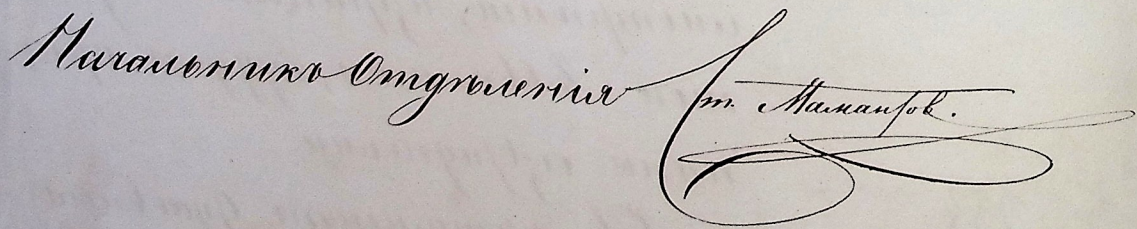 Начальникъ Отдѣленія Ст. Мамантов.